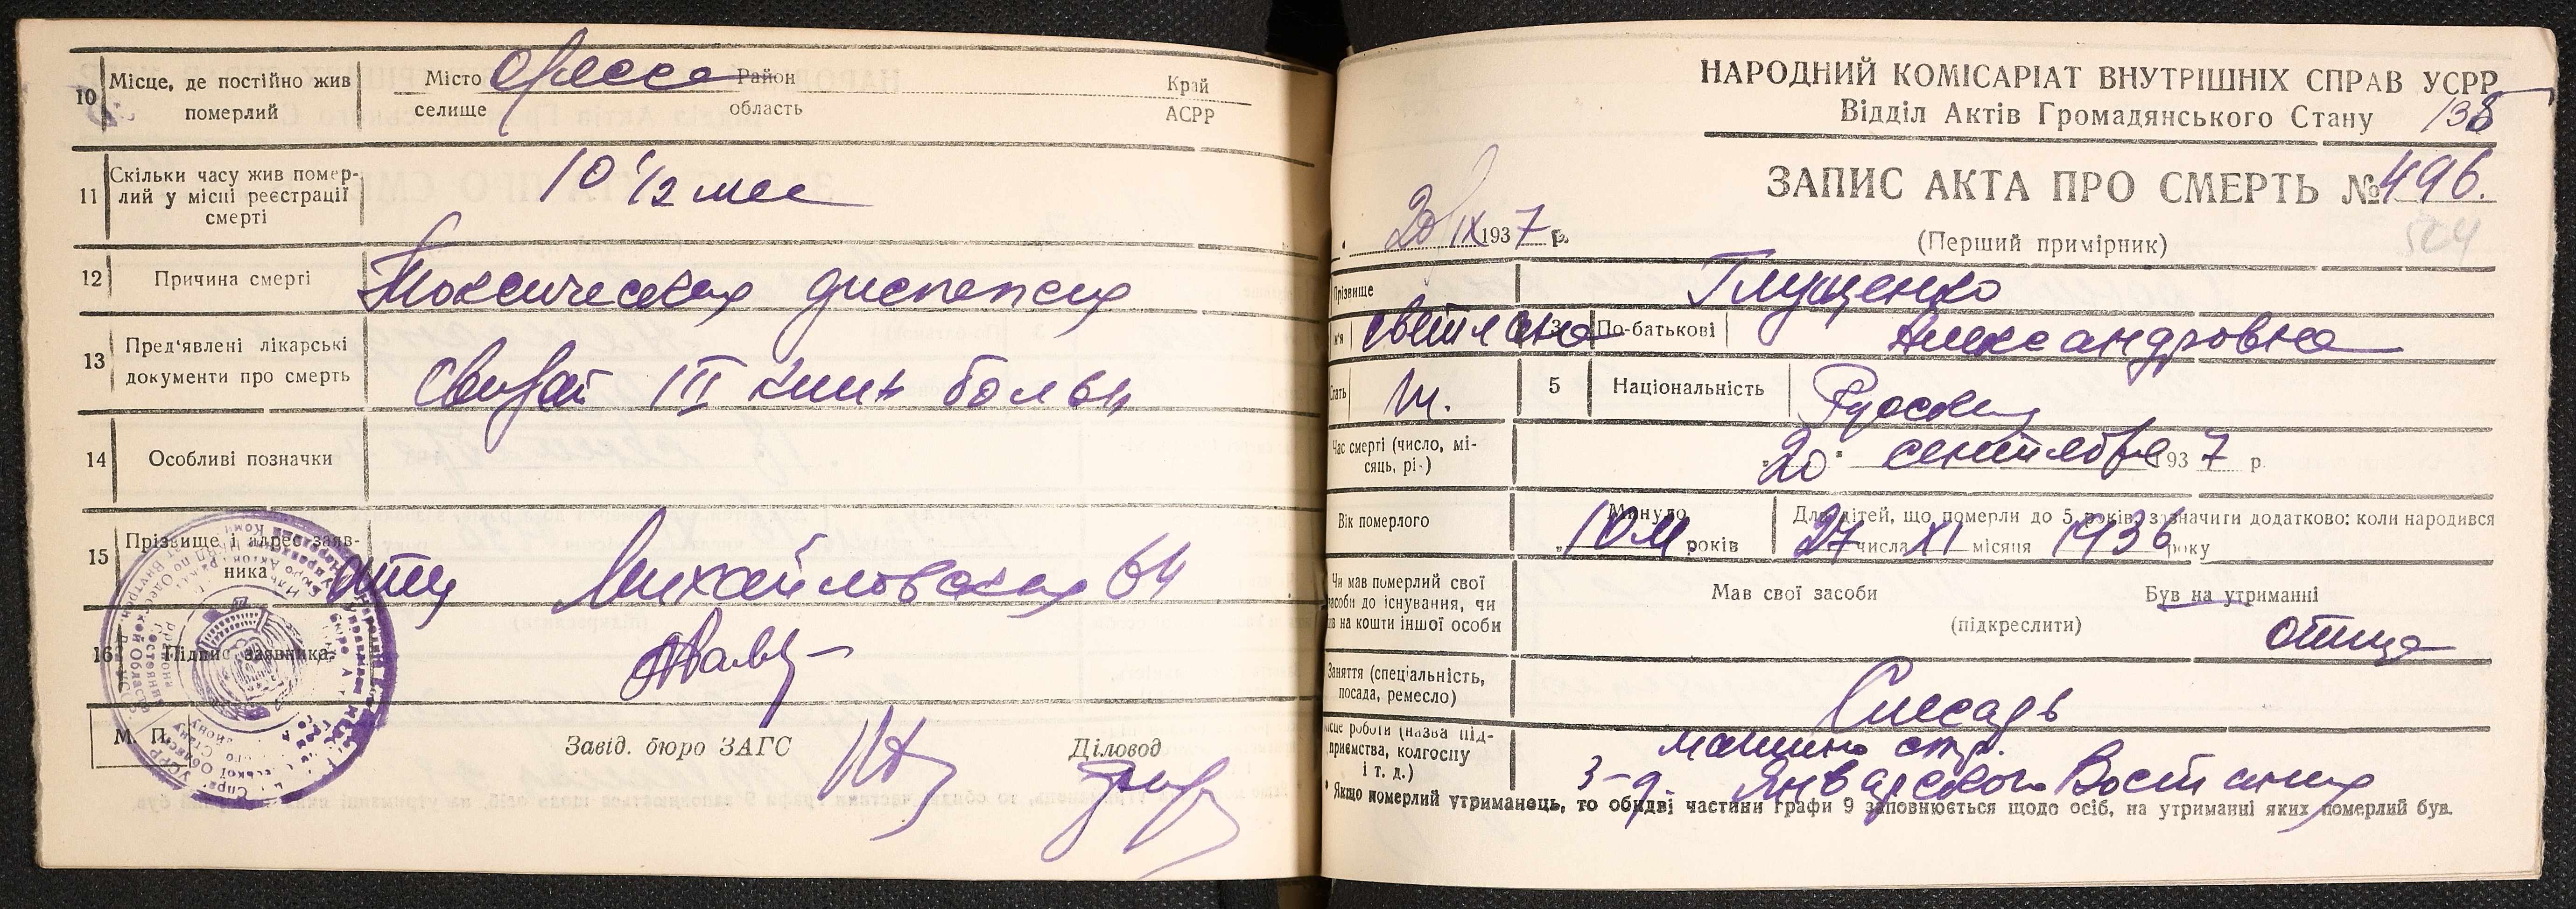 10
Місце, де постійно жив
померлий
Місто Одесса Район
Край
селище
область
АСРР
11
Скільки часу жив помер-
лий у місні реєстрації
смерті
10 1/2 мес
12
Причина смерті
Токсическая диспепсия
13
Пред'явлені лікарські
документи про смерть
III клин больн
14
Особливі позначки
15
Прізвище і адрес заяв-
ника
отец Михайловская 64
16
Підпис заявника
М. П.
Завід. бюро ЗАГС
Діловод
НАРОДНИЙ КОМІСАРІАТ ВНУТРІШНІХ СПРАВ УСРР
Відділ Актів Громадянського Стану
138
ЗАПИС АКТА ПРО СМЕРТЬ № 496.
20/IX 1937 р.
(Перший примірник)
524
Прізвище
Глущенко
м'я
Светлана
3
По-батькові
Александровна
тать
ж.
5
Національність
Русская
Час смерті (число, мі-
сяць, рі.)
"20" сентября 1937 р
Вік померлого
Минуло
10 м років
Для дітей, що померли до 5 років, зазначити додатково: коли народився
27 числа XI місяця 1936 року
Чи мав померлий свої
засоби до існування, чи
ів на кошти іншої особи
Мав свої засоби
Був на утриманні
(підкреслити)
отца
Заняття (спеціальність,
посада, ремесло)
Слесарь
існе роботи (назва під-
приємства, колгоспу
і т. д.)
машино стр.
з-д. Январского Востания
* Якщо померлий утриманець, то обидві частини графи 9 заповнюється щодо осіб, на утриманні яких померлий був.